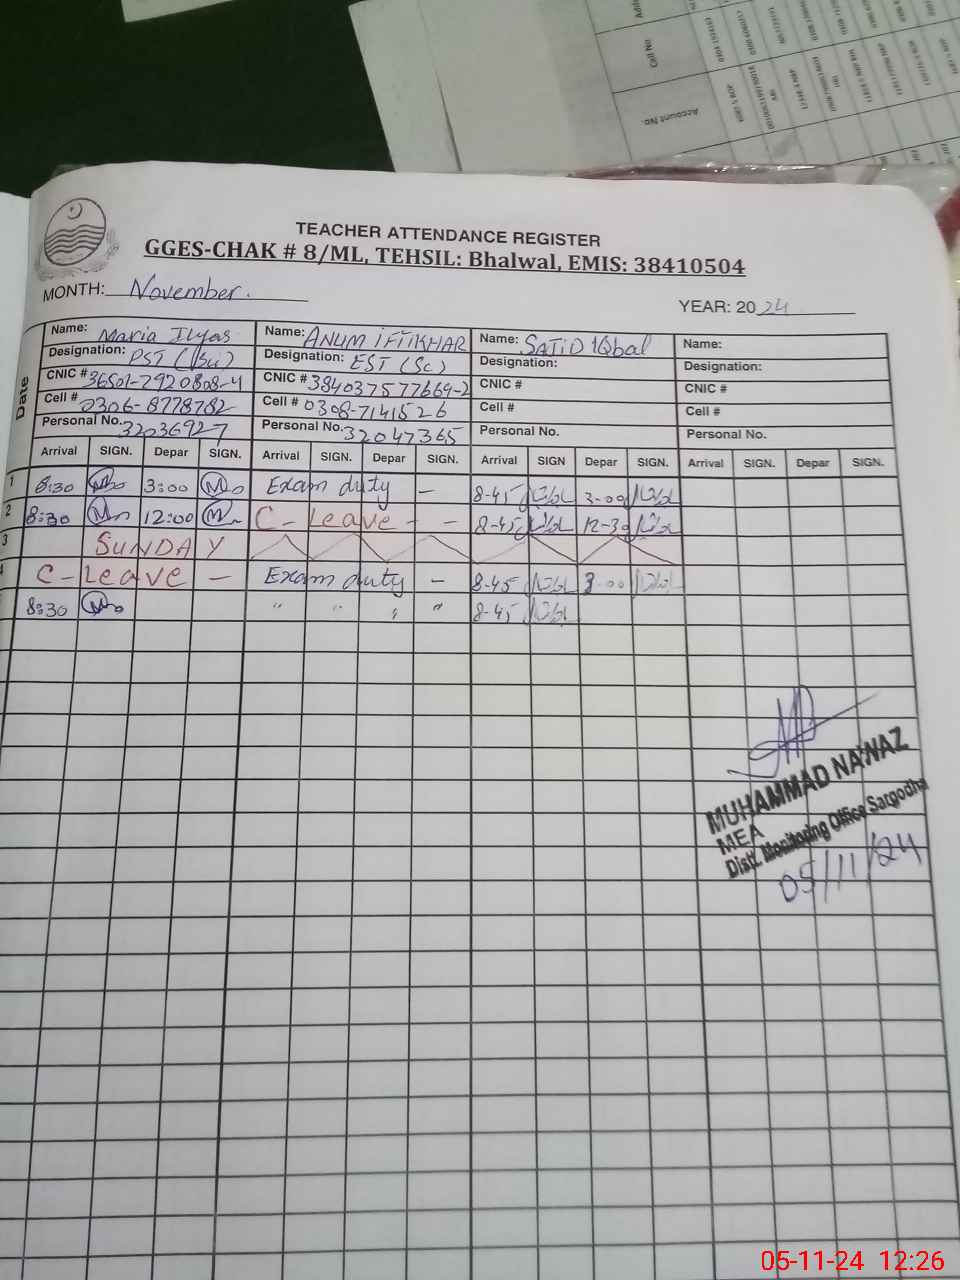 Cell No
Account No.
TEACHER ATTENDANCE REGISTER
GGES-CHAK # 8/ML, TEHSIL: Bhalwal, EMIS: 38410504
MONTH: November.
YEAR: 2024
Date
Name: Maria Ilyas Name: ANUM iFTIKHAR Name: SAJiD IQbal Name:
Designation: PST (Sci) Designation: EST (Sc) Designation: Designation:
CNIC # 36501-2920808-4 CNIC # 384037577669-2 CNIC # CNIC #
Cell # 0306-8778782 Cell # 0308-7141526 Cell # Cell #
Personal No. 32036927 Personal No. 32047365 Personal No. Personal No.
Arrival SIGN. Depar SIGN. Arrival SIGN. Depar SIGN. Arrival SIGN Depar SIGN. Arrival SIGN. Depar SIGN.
1 8:30 3:00 Exam duty – 8-45 3-00
2 8:30 12:00 C-Leave - - 8-45 12-30
3 SUNDAY
4 C-Leave – Exam duty – 8-45 3-00
8:30 " " " " 8-45
MUHAMMAD NAWAZ
MEA
Distt. Monitoring Office Sargodha
05/11/24
05-11-24 12:26